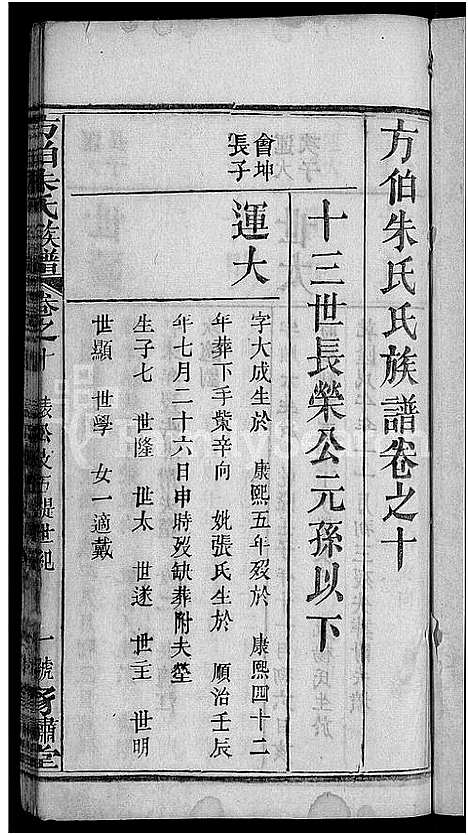 方伯朱氏氏族譜卷之十
十三世長榮公元孫以下
會坤
長子
運大
字大成生於 康熙五年歿於 康熙四十二
年葬下手柴辛向 妣張氏生於 順治壬辰
年七月二十六日申時歿缺葬附夫塋
生子七 世隆 世太 世遂 世主 世明
世顯 世學 女一適戴
方伯朱氏族譜 卷之十 世紀 一號 肅堂